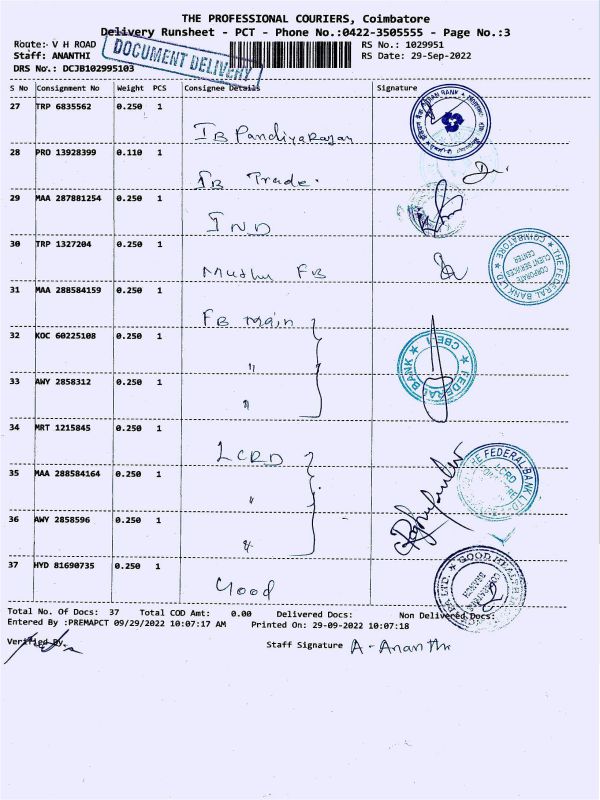 THE PROFESSIONAL COURIERS, Coimbatore
Delivery Runsheet - PCT - Phone No.:0422-3505555 - Page No.:3
Route: V H ROAD
RS No.: 1029951
Staff: ANANTHI
RS Date: 29-Sep-2022
DRS No.: DCJB102995103
DOCUMENT DELIVERY
S No Consignment No Weight PCS Consignee Details Signature
27 TRP 6835562 0.250 1
IB Pandiyarajan
28 PRO 13928399 0.110 1
IB Trade.
29 MAA 287881254 0.250 1
IND
30 TRP 1327204 0.250 1
Muthu FB
THE FEDERAL BANK LTD
CORPORATE CLIENT SERVICES CENTER
COIMBATORE
31 MAA 288584159 0.250 1
FB main
32 KOC 60225108 0.250 1
"
FEDERAL BANK
CBE-I
33 AWY 2858312 0.250 1
"
34 MRT 1215845 0.250 1
LCRD
THE FEDERAL BANK LTD
LCRD
35 MAA 288584164 0.250 1
"
36 AWY 2858596 0.250 1
"
37 HYD 81690735 0.250 1
Good
GOOD HEALTH
Total No. Of Docs: 37 Total COD Amt: 0.00 Delivered Docs: Non Delivered Docs:
Entered By :PREMAPCT 09/29/2022 10:07:17 AM Printed On: 29-09-2022 10:07:18
Verified By.
Staff Signature A. Ananthi